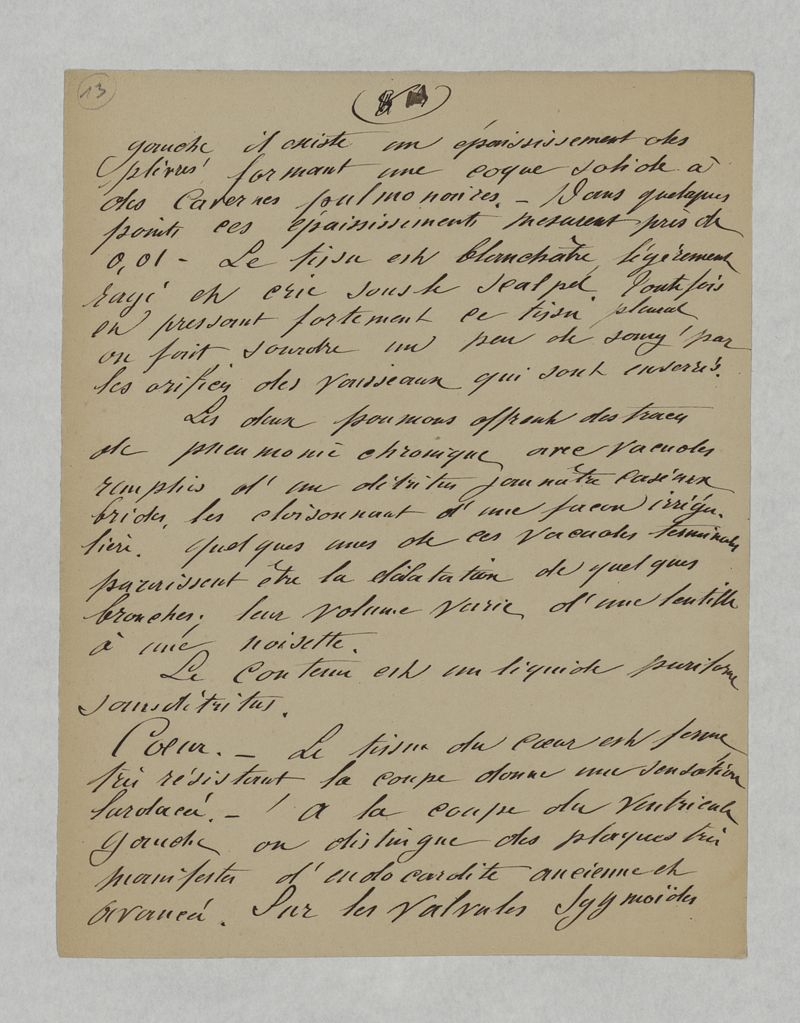 13
gauche il existe un épaississement des
plèvres formant une coque solide à
des cavernes pulmonaires. – Dans quelques
points ces épaississements mesurent près de
0,01 – Le tissu est blanchâtre, légèrement
rayé et crie sous le scalpel. Toutefois
en pressant fortement ce tissu pleural
on fait sourdre un peu de sang par
les orifices des vaisseaux qui sont enserrés.
Les deux poumons offrent des traces
de pneumonie chronique avec vacuoles
remplies d'un détritus jaunâtre caséeux
brides, les cloisonnant d'une façon irrégu-
lière. Quelques unes de ces vacuoles terminales
paraissent être la dilatation de quelques
bronches; leur volume varie, d'une lentille
à une noisette.
Le contenu est un liquide puriforme
sans détritus.
Coeur. – Le tissu du coeur est ferme,
très résistant la coupe donne une sensation
lardacée. – A la coupe du ventricule
gauche on distingue des plaques très
manifestes d'endocardite ancienne et
avancée. Sur les valvules sygmoïdes